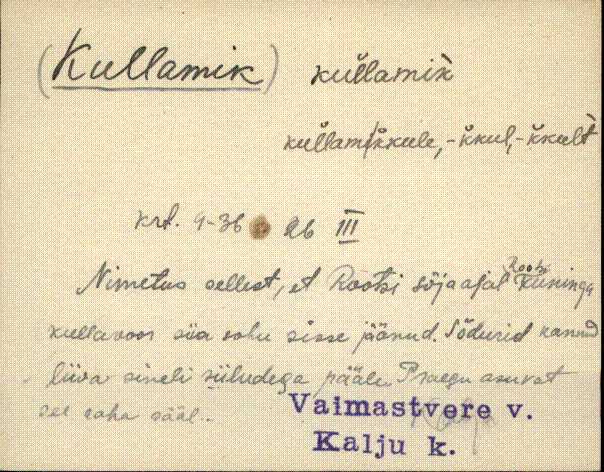 (Kullamik) kul̆lamik̀
kul̆lamik̆kule, -k̆kul, -k̆kult̀
krt. 9-36 Ab III
Nimetus sellest, et Rootsi sõjaajal Rootsi Kuninga
kullavoor siia sohu sisse jäänud. Sõdurid kannud
liiva sineli siiludega pääle. Praegu asuvat
see raha sääl.
Vaimastvere v.
Kalju k.